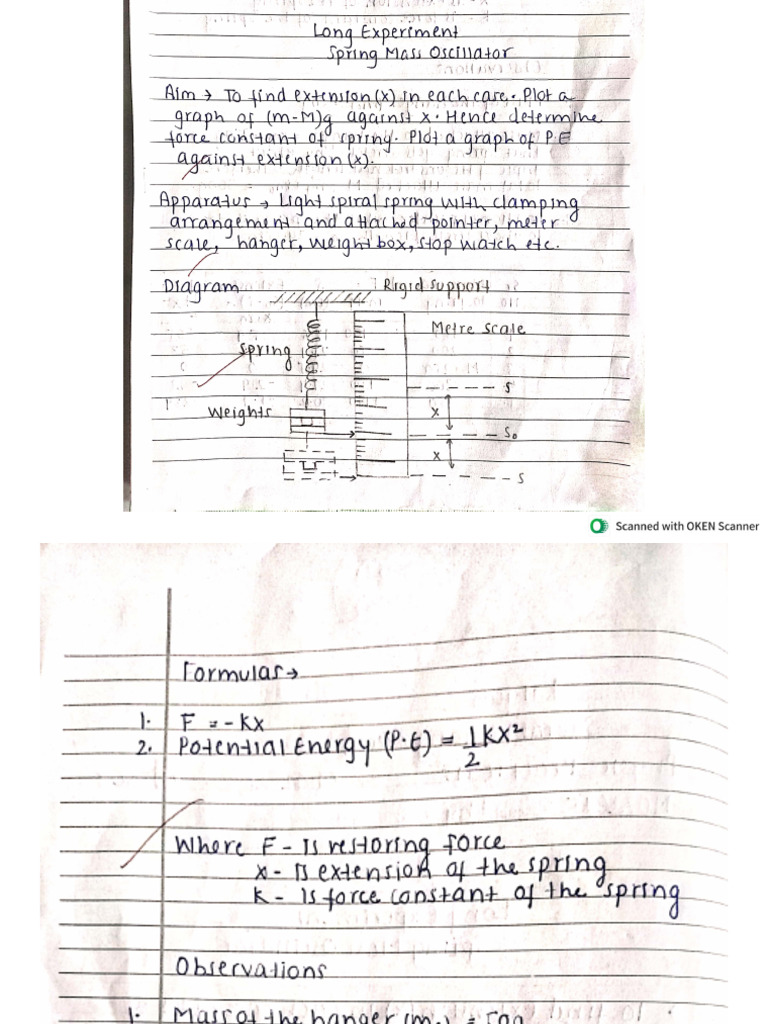 Long Experiment
Spring Mass Oscillator
Aim → To find extension (x) in each case. Plot a
graph of (m-M)g against x. Hence determine
force constant of spring. Plot a graph of P.E
against extension (x).
Apparatus → Light spiral spring with clamping
arrangement and attached pointer, meter
scale, hanger, weight box, stop watch etc.
Diagram
Rigid support
Metre scale
spring
S
Weights
x
S₀
x
S
Scanned with OKEN Scanner
Formulas →
1. F = - Kx
2. Potential Energy (P.E) = 1/2 Kx²
Where F - Is restoring force
x - Is extension of the spring
K - Is force constant of the spring
Observations
1. Mass of the hanger